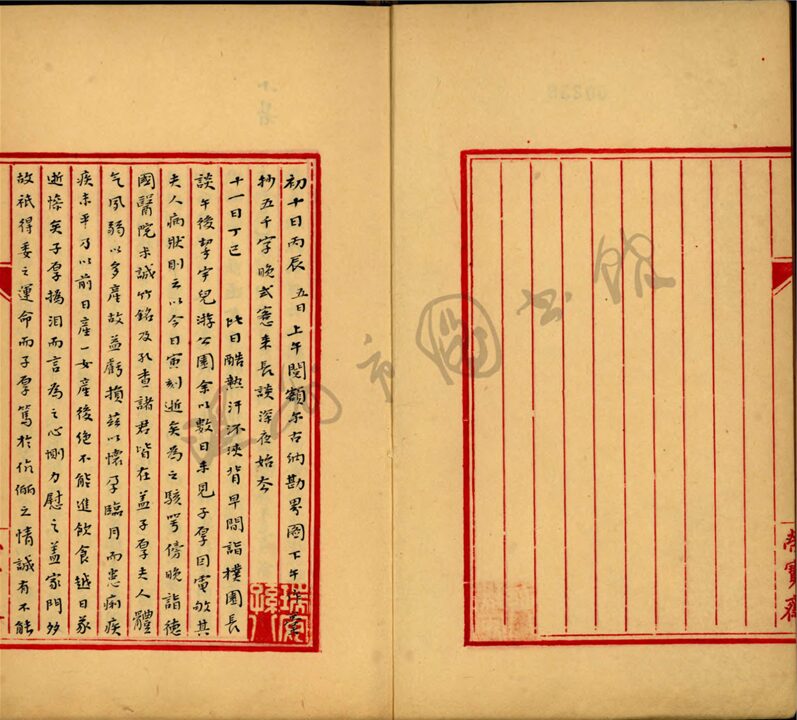 榮寶齋
初十日丙辰 五日 上午閱額尔古纳勘界圖下午作篆
抄五千字晚式憲来長談深夜始去
十一日丁巳 此日酷熱汗浹背早間詣樸園長
談午後挈宇兒游公園余以數日未見子厚因電敂其
夫人病狀則已以今日寅刻逝矣為之駭咢傍晚詣德
國醫院未誠竹銘及孔查諸君皆在蓋子厚夫人體
气夙弱以多產故益虧損茲以懷孕臨月而患痢疾
疾未平乃以前日產一女產後絶不能進飲食越日㒸
逝慘矣子厚揮泪而言為之心惻力慰之蓋家門多
故祇得委之運命而子厚篤於伉儷之情誠有不能
温州市圖书馆